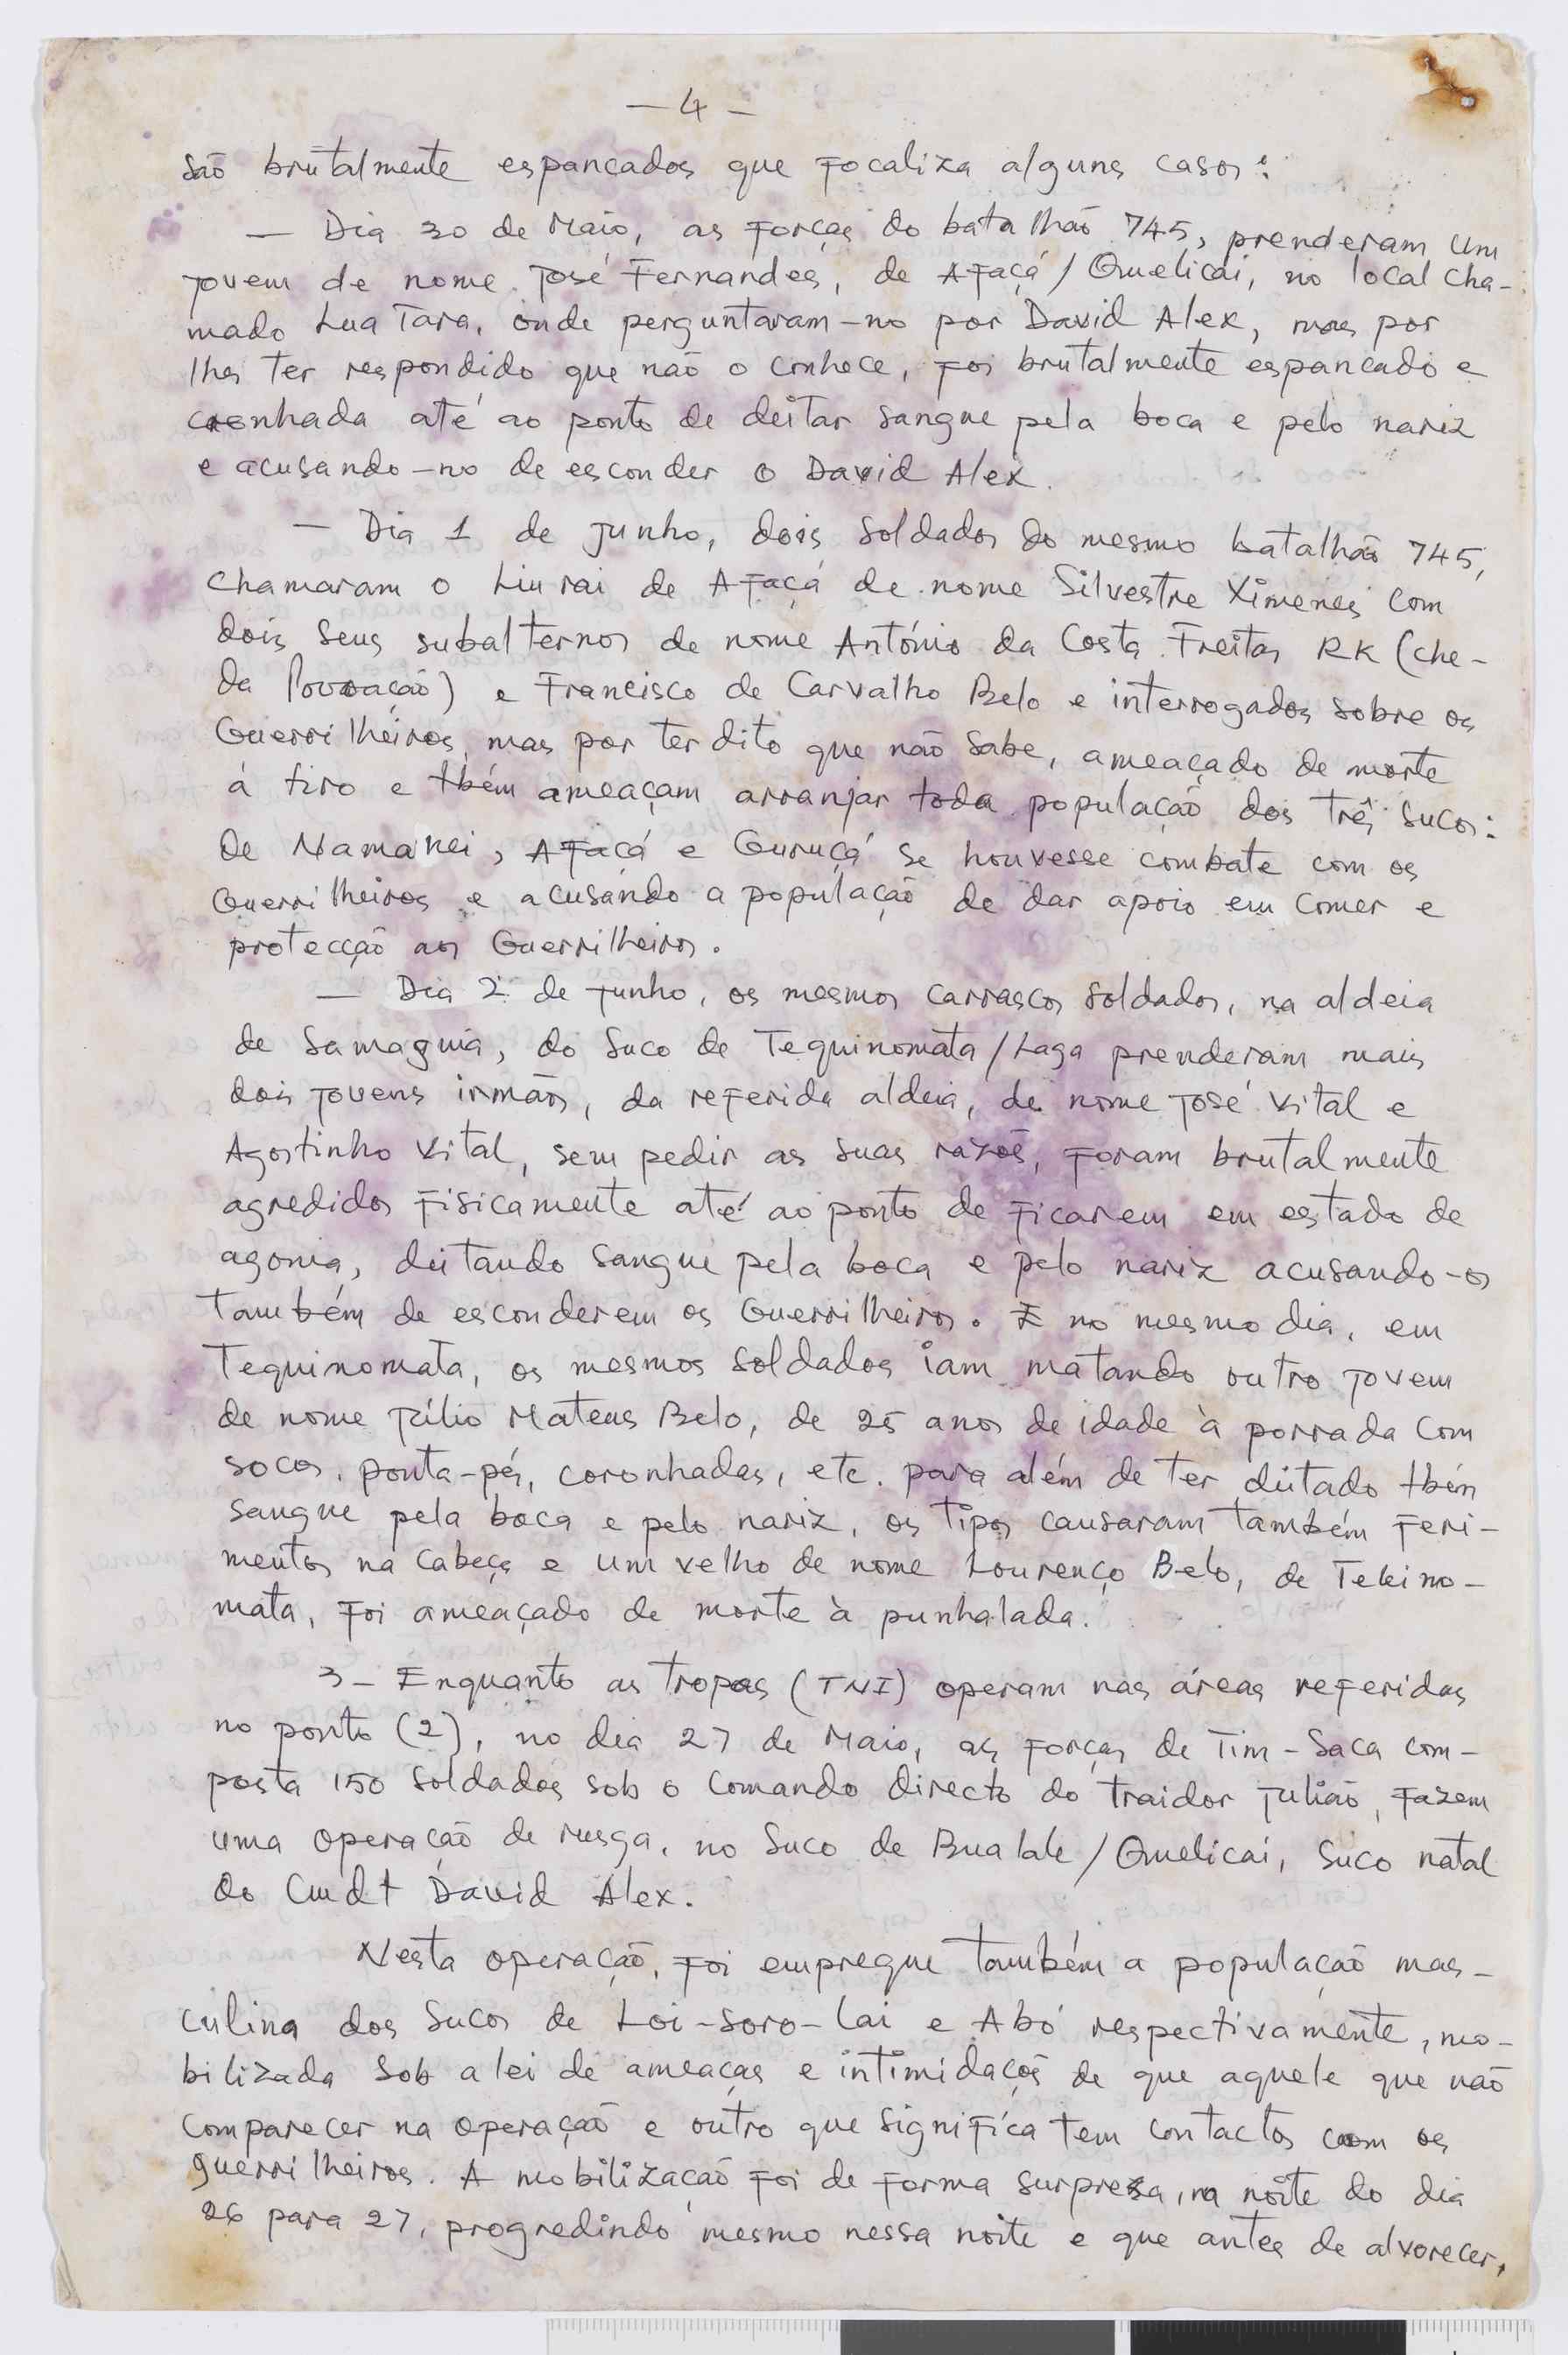 — 4 —
são brutalmente espancados que focaliza alguns casos:
— Dia 30 de Maio, as forças do batalhão 745, prenderam um
jovem de nome José Fernandes, de Afaçá/Quelicai, no local cha-
mado Lua Tara, onde perguntaram-no por David Alex, mas por
lhes ter respondido que não o conhece, foi brutalmente espancado e
cronhada até ao ponto de deitar sangue pela boca e pelo nariz
e acusando-no de esconder o David Alex.
— Dia 1 de junho, dois soldados do mesmo batalhão 745,
chamaram o Liurai de Afaçá de nome Silvestre Ximenes com
dois seus subalternos de nome António da Costa Freitas RK (che-
da Povoação) e Francisco de Carvalho Belo e interrogados sobre os
Guerrilheiros, mas por ter dito que não sabe, ameaçado de morte
à tiro e tbém ameaçam arranjar toda população dos três sucos:
de Namanei, Afaçá e Guruçá se houvesse combate com os
Guerrilheiros e acusando a população de dar apoio em comer e
protecção aos Guerrilheiros.
— Dia 2 de junho, os mesmos carrascos soldados, na aldeia
de Samaguia, do Suco de Tequinomata/Laga prenderam mais
dois jovens irmãos, da referida aldeia, de nome José Vital e
Agostinho Vital, sem pedir as suas razões, foram brutalmente
agredidos fisicamente até ao ponto de ficarem em estado de
agonia, deitando sangue pela boca e pelo nariz acusando-os
também de esconderem os Guerrilheiros. E no mesmo dia, em
Tequinomata, os mesmos soldados iam matando outro jovem
de nome Júlio Mateus Belo, de 25 anos de idade à porrada com
socos, ponta-pés, coronhadas, etc. para além de ter deitado tbém
sangue pela boca e pelo nariz, os tipos causaram também feri-
mentos na cabeça e um velho de nome Lourenço Belo, de Tekino-
mata, foi ameaçado de morte à punhalada.
3 – Enquanto as tropas (TNI) operam nas áreas referidas
no ponto (2), no dia 27 de Maio, as forças de Tim-Saca com-
posta 150 soldados sob o comando directo do traidor Julião, fazem
uma operação de rusga, no Suco de Bualale/Quelicai, Suco natal
do Cmdt David Alex.
Nesta operação, foi empregue também a população mas-
culina dos Sucos de Loi-soro-lai e Abó respectivamente, mo-
bilizada sob a lei de ameaças e intimidações de que aquele que não
comparecer na operação e outro que significa tem contactos com os
guerrilheiros. A mobilização foi de forma surpresa, na noite do dia
26 para 27, progredindo mesmo nessa noite e que antes de alvorecer,